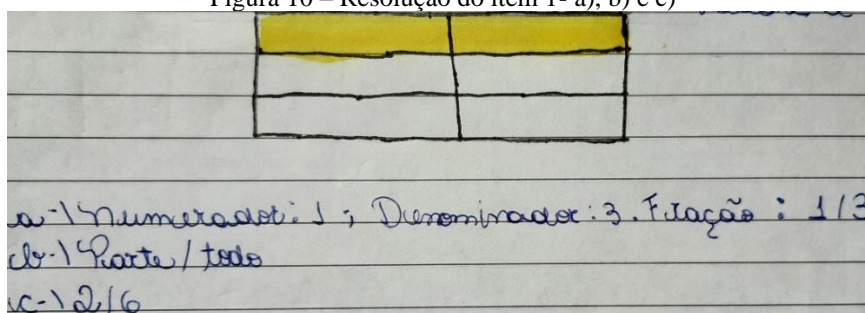 Figura 10 – Resolução do item 1- a), b) e c)
a-) Numerador: 1 ; Denominador: 3. Fração : 1/3
b-) Parte / todo
c-) 2/6